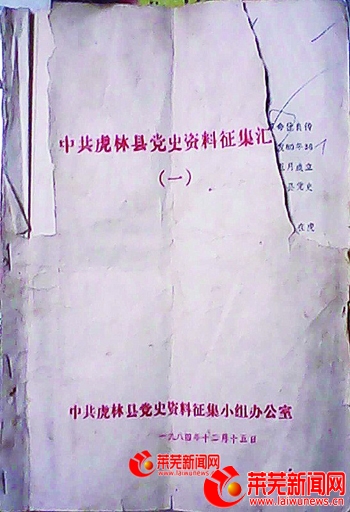 中共虎林县党史资料征集汇
（一）
革命征负传
改的年3的
五月成立
县党史
在虎
中共虎林县党史资料征集小组办公室
一九八四年十二月十五日
莱芜新闻网
www.laiwunews.cn
莱芜新闻网
www.laiwunews.cn